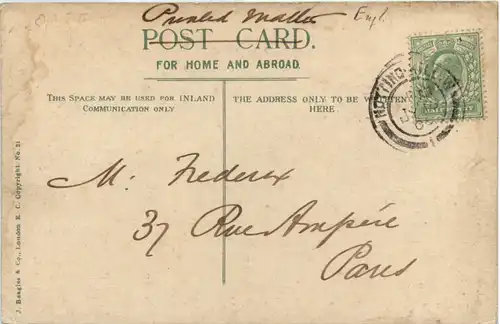 Printed Matter Engl.
POST CARD.
FOR HOME AND ABROAD.
THIS SPACE MAY BE USED FOR INLAND
COMMUNICATION ONLY
THE ADDRESS ONLY TO BE WRITTEN
HERE
M. Frederex
37 Rue Ampére
Paris
J. Beagles & Co., London E. C. Copyright. No. 51
NOTTING-HILL